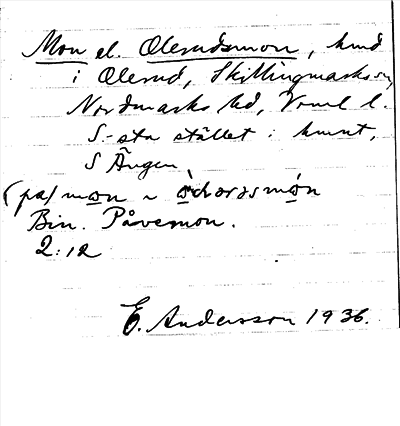 Mon el. Olerudsmon, hmd
i Olerud, Skillingmarks sn,
Nordmarks hd, Vrml l.
S-sta stället i hmnt,
S Ängen
(på) mon ~
Bin. Påvemon.
2:12
E. Andersson 1936.